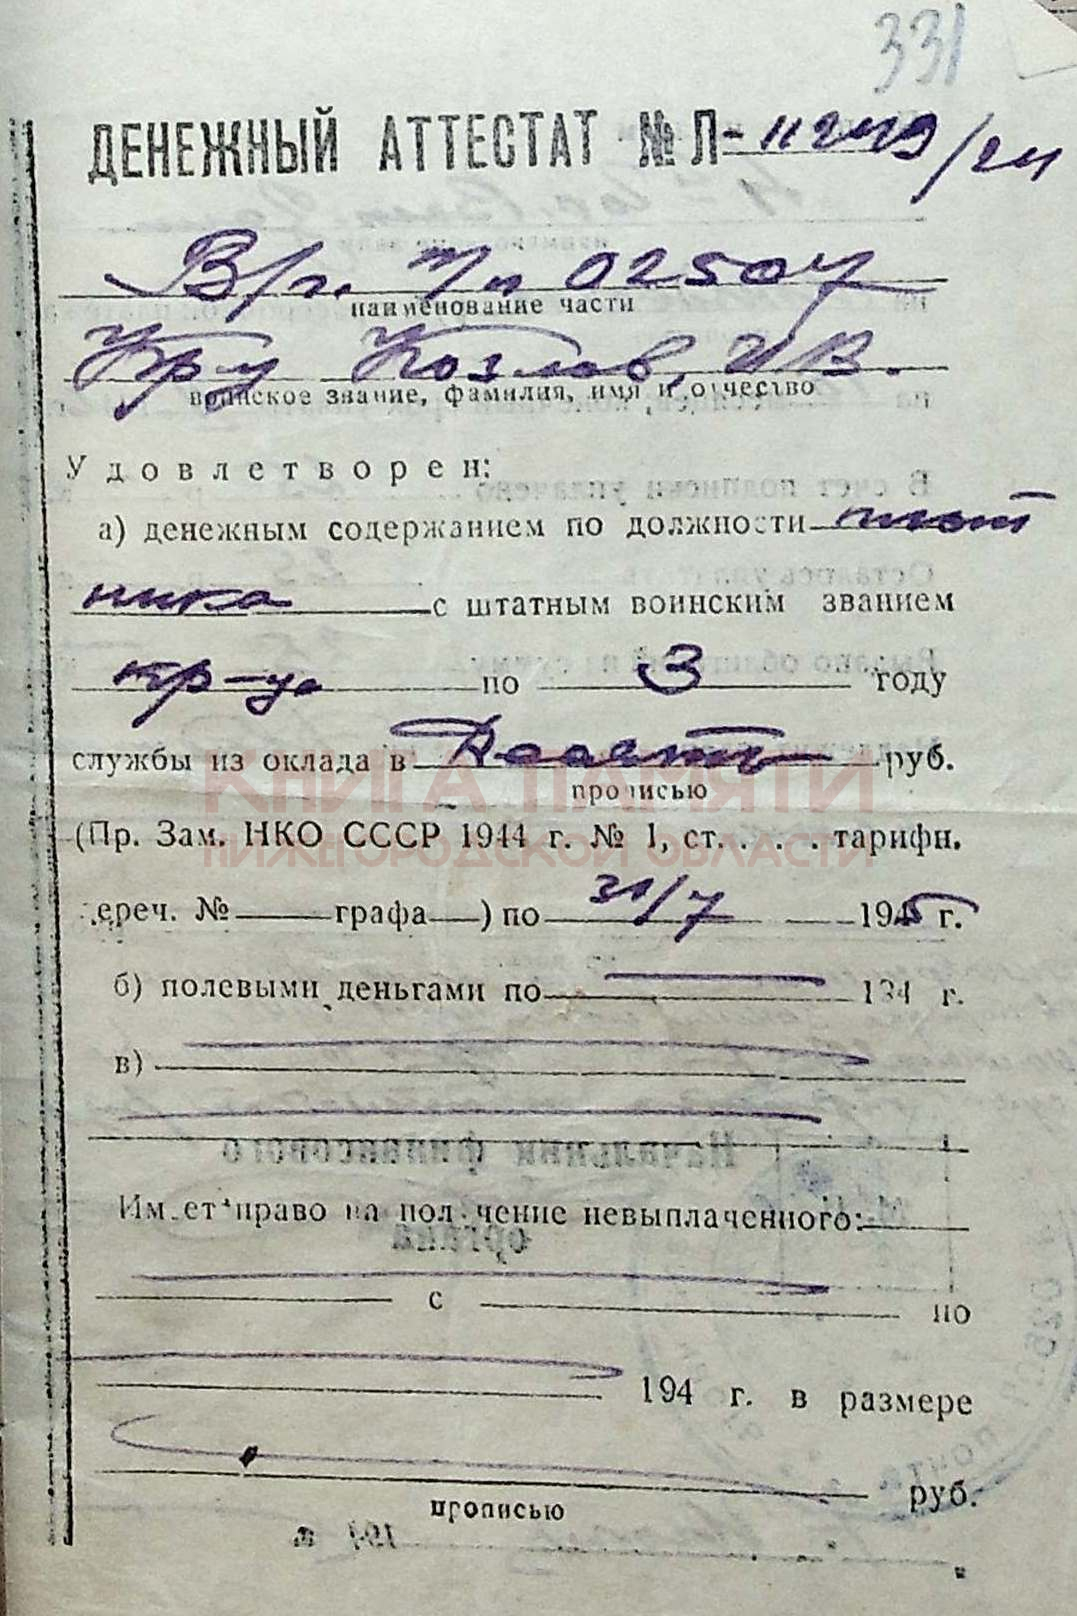 331
ДЕНЕЖНЫЙ АТТЕСТАТ № Л-112449/24
В/ч. п/п 02504
наименование части
Кр-у Козлов, И В.
воинское звание, фамилия, имя и отчество
Удовлетворен:
а) денежным содержанием по должности плот
ника с штатным воинским званием
кр-ц по 3 году
службы из оклада в Десять руб.
прописью
КНИГА ПАМЯТИ
(Пр. Зам. НКО СССР 1944 г. № 1, ст. . . . тарифн.
НИЖЕГОРОДСКОЙ ОБЛАСТИ
переч. № графа ) по 31/7 1945 г.
б) полевыми деньгами по 194 г.
в)
Имеет право на получение невыплаченного:
с по
194 г. в размере
руб.
прописью